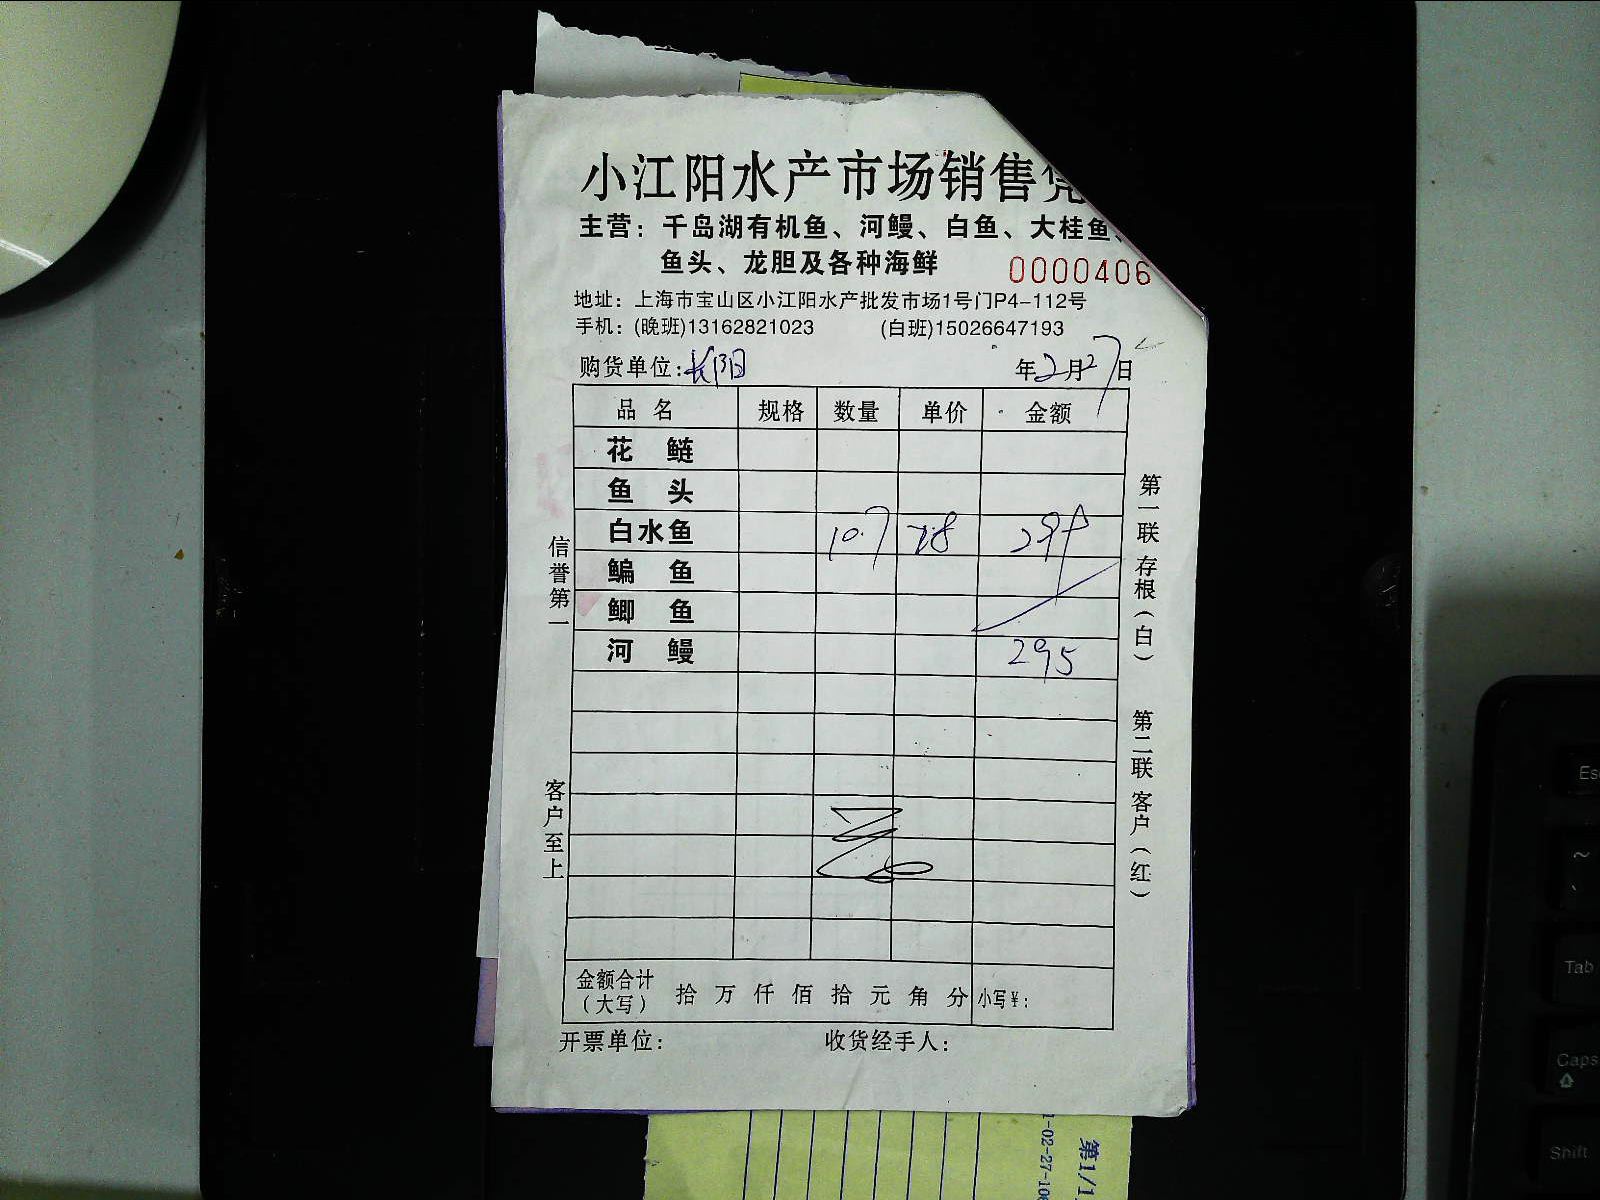 小江阳水产市场销售凭
主营：千岛湖有机鱼、河鳗、白鱼、大桂鱼、
鱼头、龙胆及各种海鲜
0000406
地址：上海市宝山区小江阳水产批发市场1号门P4-112号
手机：(晚班)13162821023 (白班)15026647193
购货单位：长阳 年2月27日
品名 规格 数量 单价 金额
花鲢
鱼头
白水鱼 10.7
鳊鱼
鲫鱼
河鳗 295
金额合计（大写） 拾 万 仟 佰 拾 元 角 分 小写¥：
开票单位： 收货经手人：
信誉第一
客户至上
第一联 存根（白）
第二联 客户（红）
1-02-27-108
第1/1
Esc
~
Tab
Caps
Shift